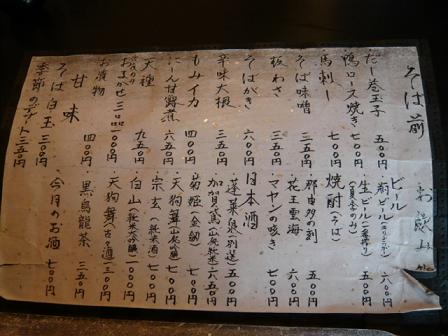 そば前
だし巻玉子 五〇〇円
鴨ロース焼き 七〇〇円
馬刺し 七〇〇円
そば味噌 三五〇円
板わさ 三五〇円
そばがき 六〇〇円
辛味大根 三五〇円
もみイカ 四〇〇円
にしん甘露煮 六五〇円
天種 九五〇円
おまかせ三品 一〇〇〇円
お漬物 四〇〇円
甘味
そば白玉 二五〇円
季節のデザート 三五〇円
お飲み
ビール
・瓶ビール 六〇〇円
・生ビール 五〇〇円
焼酎(そば)
・那由多の刻 五〇〇円
・花王雲海 六〇〇円
・マヤンの呟き 七〇〇円
日本酒
・蓬莱泉(別撰) 五〇〇円
・加賀鳶(山廃純米) 六五〇円
・菊姫(金劔) 七〇〇円
・天狗舞(山廃吟醸) 七〇〇円
・宗玄(純米酒) 七〇〇円
・白山(純米大吟醸) 一〇〇〇円
・天狗舞(古古酒) 一三〇〇円
・黒烏龍茶 三五〇円
・今月のお酒 七〇〇円